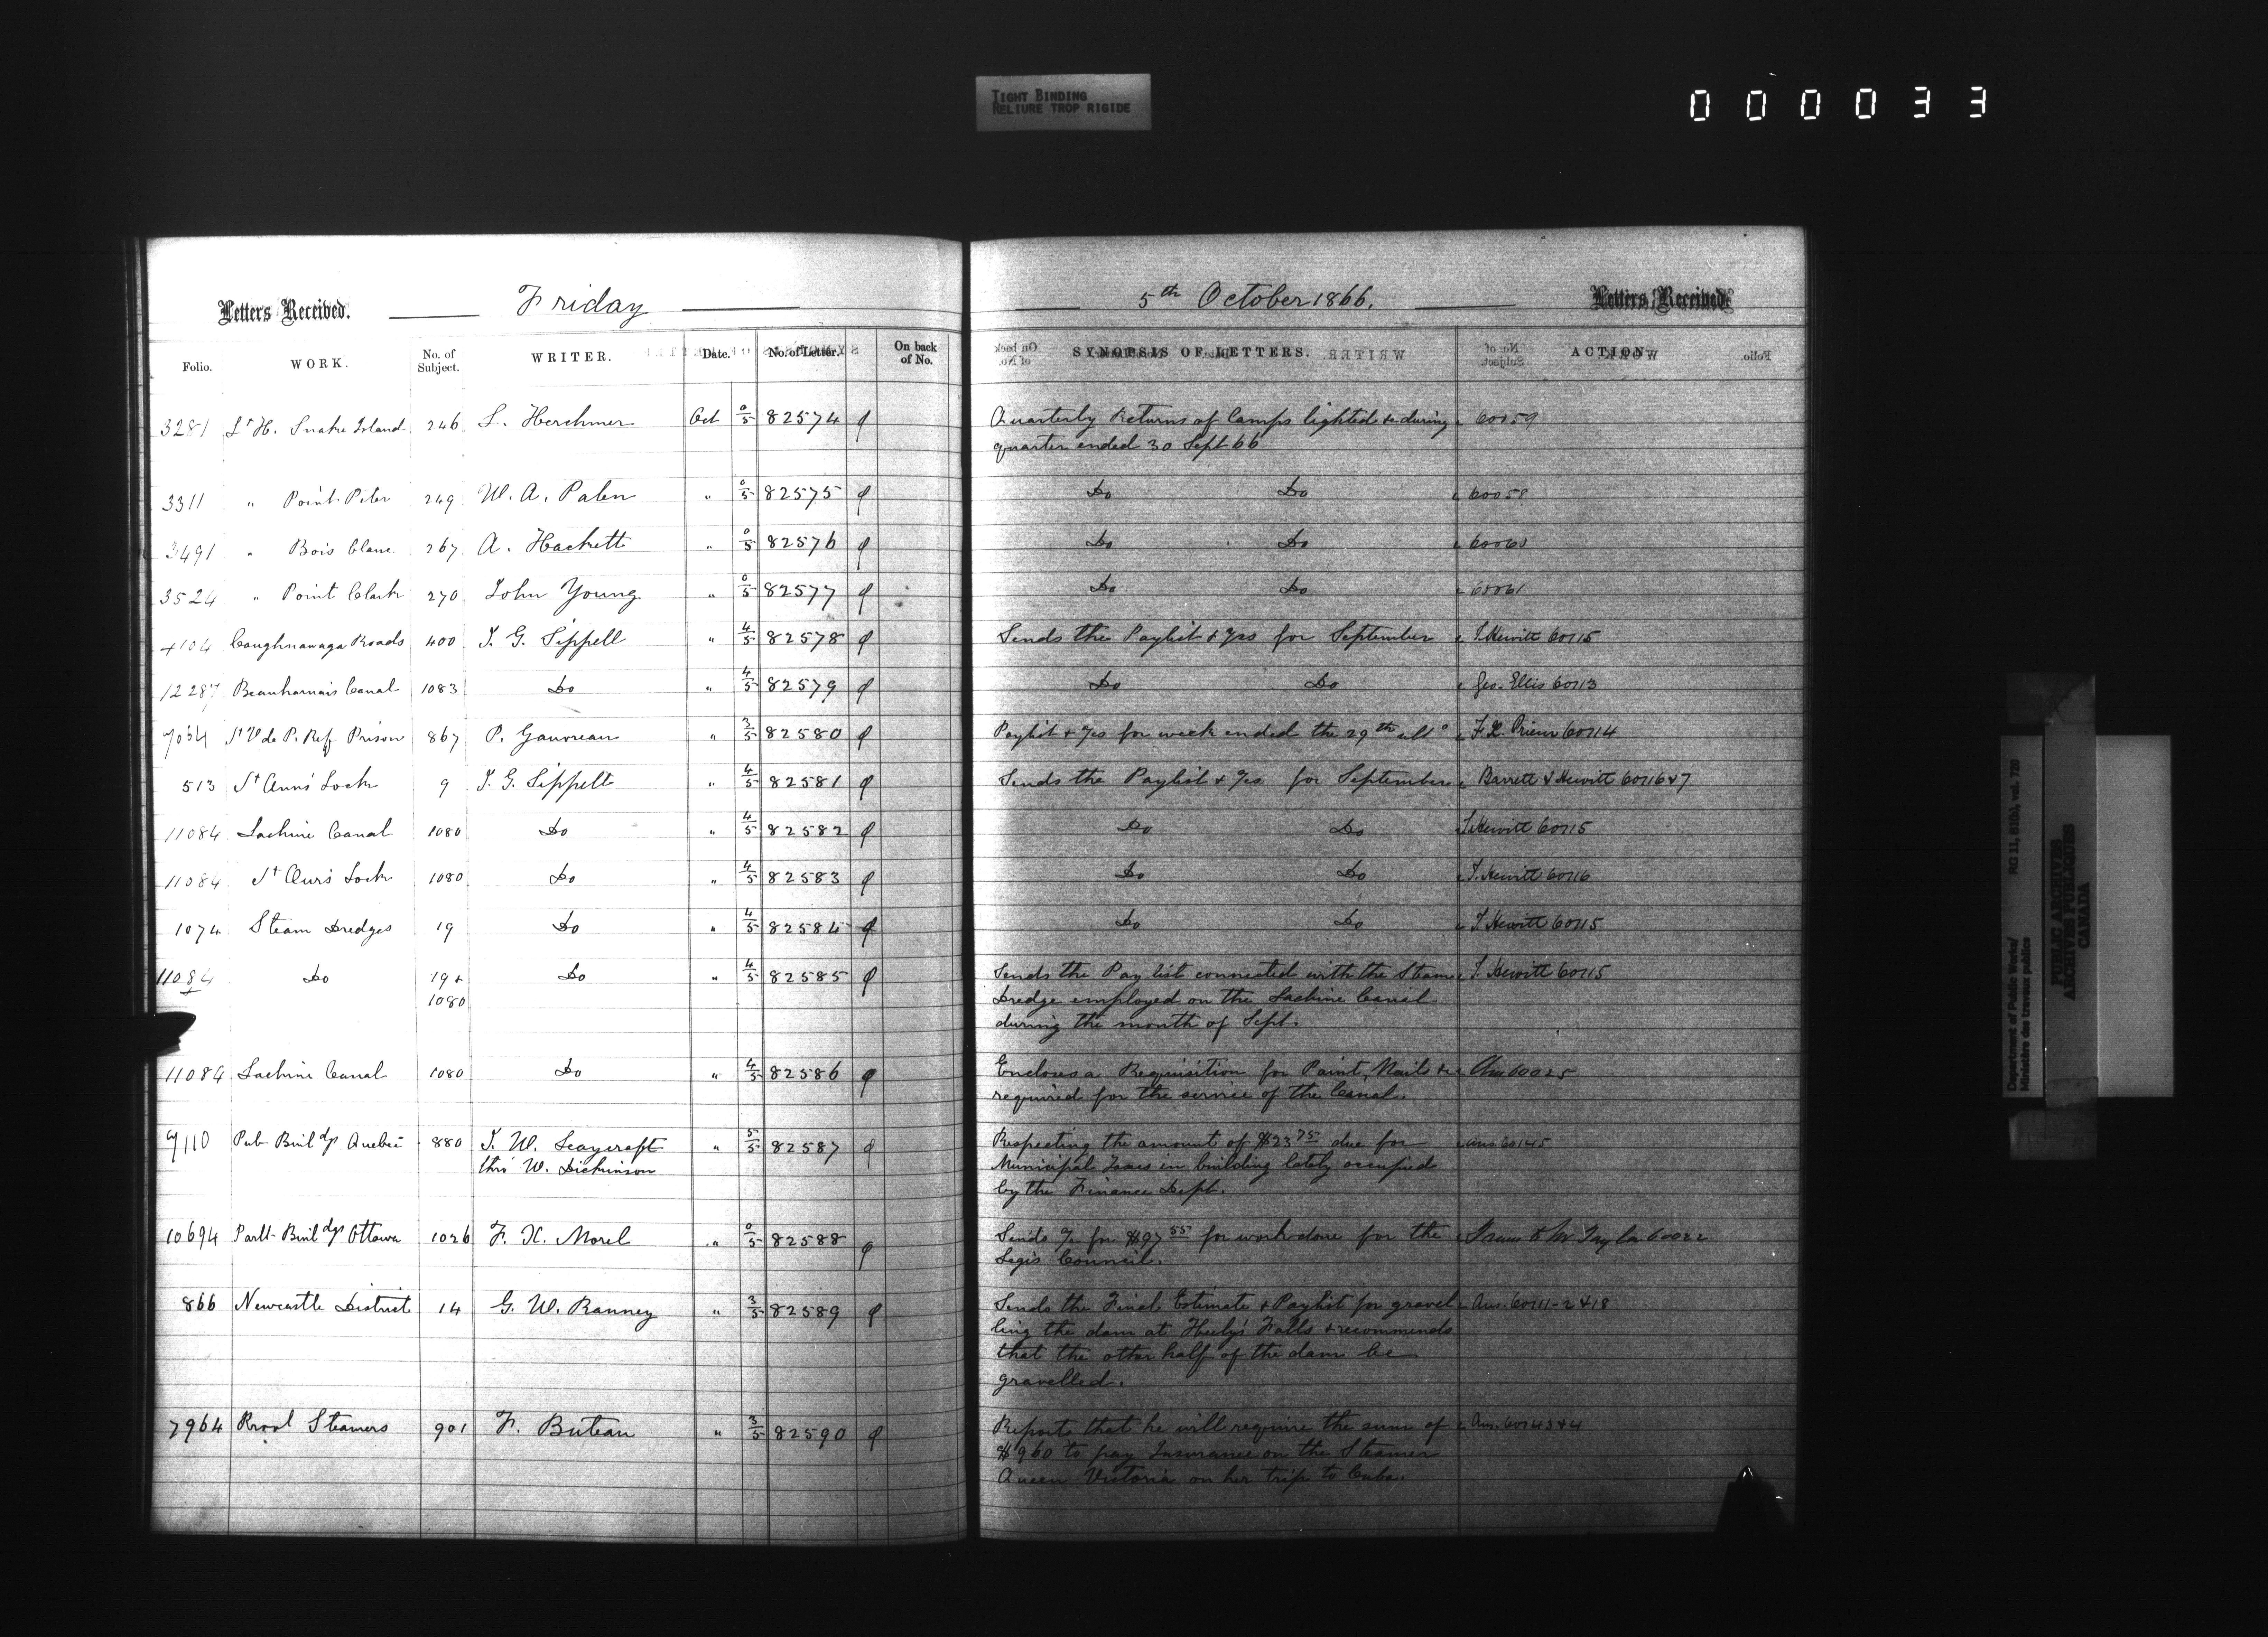 TIGHT BINDING
RELIURE TROP RIGIDE
000033
Letters Received. Friday
5th October 1866. Letters Received.
Folio. WORK. No. of Subject. WRITER. Date. No. of Letter. On back of No. SYNOPSIS OF LETTERS. ACTION.
3281 Lt H. Snake Island 246 L. Herchmer Oct 0/5 82574 Quarterly Returns of Lamps lighted &c during 60059
quarter ended 30 Sept 66
3311 " Point Peter 249 W. A. Palen " 0/5 82575 Do Do 60058
3491 " Bois Blanc 267 A. Hackett " 0/5 82576 Do Do 60060
3524 " Point Clark 270 John Young " 0/5 82577 Do Do 60061
4104 Caughnawaga Roads 400 J. G. Sippell " 4/5 82578 Sends the Paylist & %cs for September J. Hewitt 60115
12287 Beauharnais Canal 1083 Do " 4/5 82579 Do Do Geo. Ellis 60113
7064 St V de P. Ref Prison 867 P. Gauvreau " 3/5 82580 Paylist & %cs for week ended the 29th ulto F. X. Prieur 60114
513 St Ann's Lock 9 J. G. Sippell " 4/5 82581 Sends the Paylist & %cs for September Barrett & Hewitt 60116&7
11084 Lachine Canal 1080 Do " 4/5 82582 Do Do J. Hewitt 60115
11084 St Ann's Lock 1080 Do " 4/5 82583 Do Do J. Hewitt 60116
1074 Steam Dredges 19 Do " 4/5 82584 Do Do J. Hewitt 60115
11084 Do 19 & Do " 4/5 82585 Sends the Pay list connected with the Steam J. Hewitt 60115
1080 Dredge employed on the Lachine Canal
during the month of Sept.
11084 Lachine Canal 1080 Do " 4/5 82586 Encloses a Requisition for Paint, Nails &c Ans 60025
required for the service of the Canal.
7110 Pub Buildgs Quebec 880 J. W. Leaycraft " 5/5 82587 Respecting the amount of $23 75 due for Ans 60145
thro' W. Dickinson Municipal Taxes in building lately occupied
by the Finance Dept.
10694 Parlt Buildgs Ottawa 1026 F. X. Morel " 0/5 82588 Sends %c for $97 55 for work done for the Trans to Mr Taylor 60022
Legis Council.
866 Newcastle District 14 G. W. Ranney " 3/5 82589 Sends the Final Estimate & Paylist for gravel Ans. 60111-2 & 18
ling the dam at Heely's Falls & recommends
that the other half of the dam be
gravelled.
7964 Provl Steamers 901 F. Buteau " 3/5 82590 Reports that he will require the sum of Ans. 60143&4
$960 to pay Insurance on the Steamer
Queen Victoria on her trip to Cuba.
Department of Public Works/ RG 11, B1(b), vol. 720
Ministère des travaux publics
PUBLIC ARCHIVES
ARCHIVES PUBLIQUES
CANADA